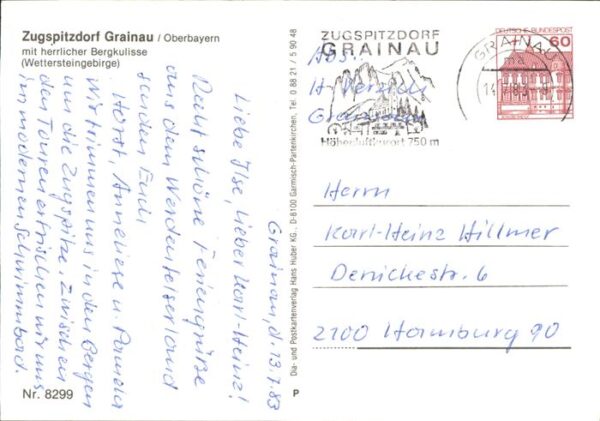 Zugspitzdorf Grainau / Oberbayern
mit herrlicher Bergkulisse
(Wettersteingebirge)
Grainau, d. 13.7.83
Liebe Ilse, lieber Karl-Heinz!
Recht schöne Feriengrüße
aus dem Werdenfelserland
senden Euch
Horst, Anneliese u. Pamela
Wir trimmen uns in den Bergen
um die Zugspitze. Zwischen
den Touren erfrischen wir uns
im modernen Schwimmbad.
Nr. 8299
Dia- und Postkartenverlag Hans Huber KG., D-8100 Garmisch-Partenkirchen, Tel. 0 88 21 / 5 90 48
P
ZUGSPITZDORF
GRAINAU
Höhenluftkurort 750 m
Abs.:
H.
Grainau
GRAINAU
DEUTSCHE BUNDESPOST
60
Herrn
Karl-Heinz Hillmer
Denickestr. 6
2100 Hamburg 90